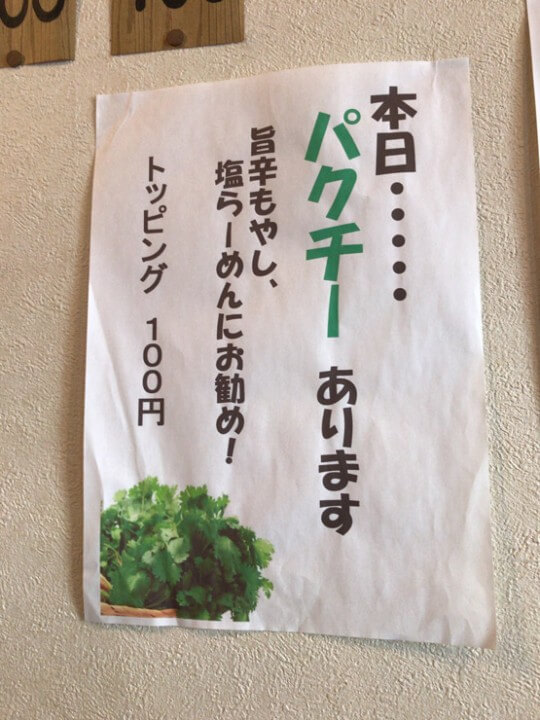 本日・・・・・
パクチー あります
旨辛もやし、
塩らーめんにお勧め！
トッピング 100円